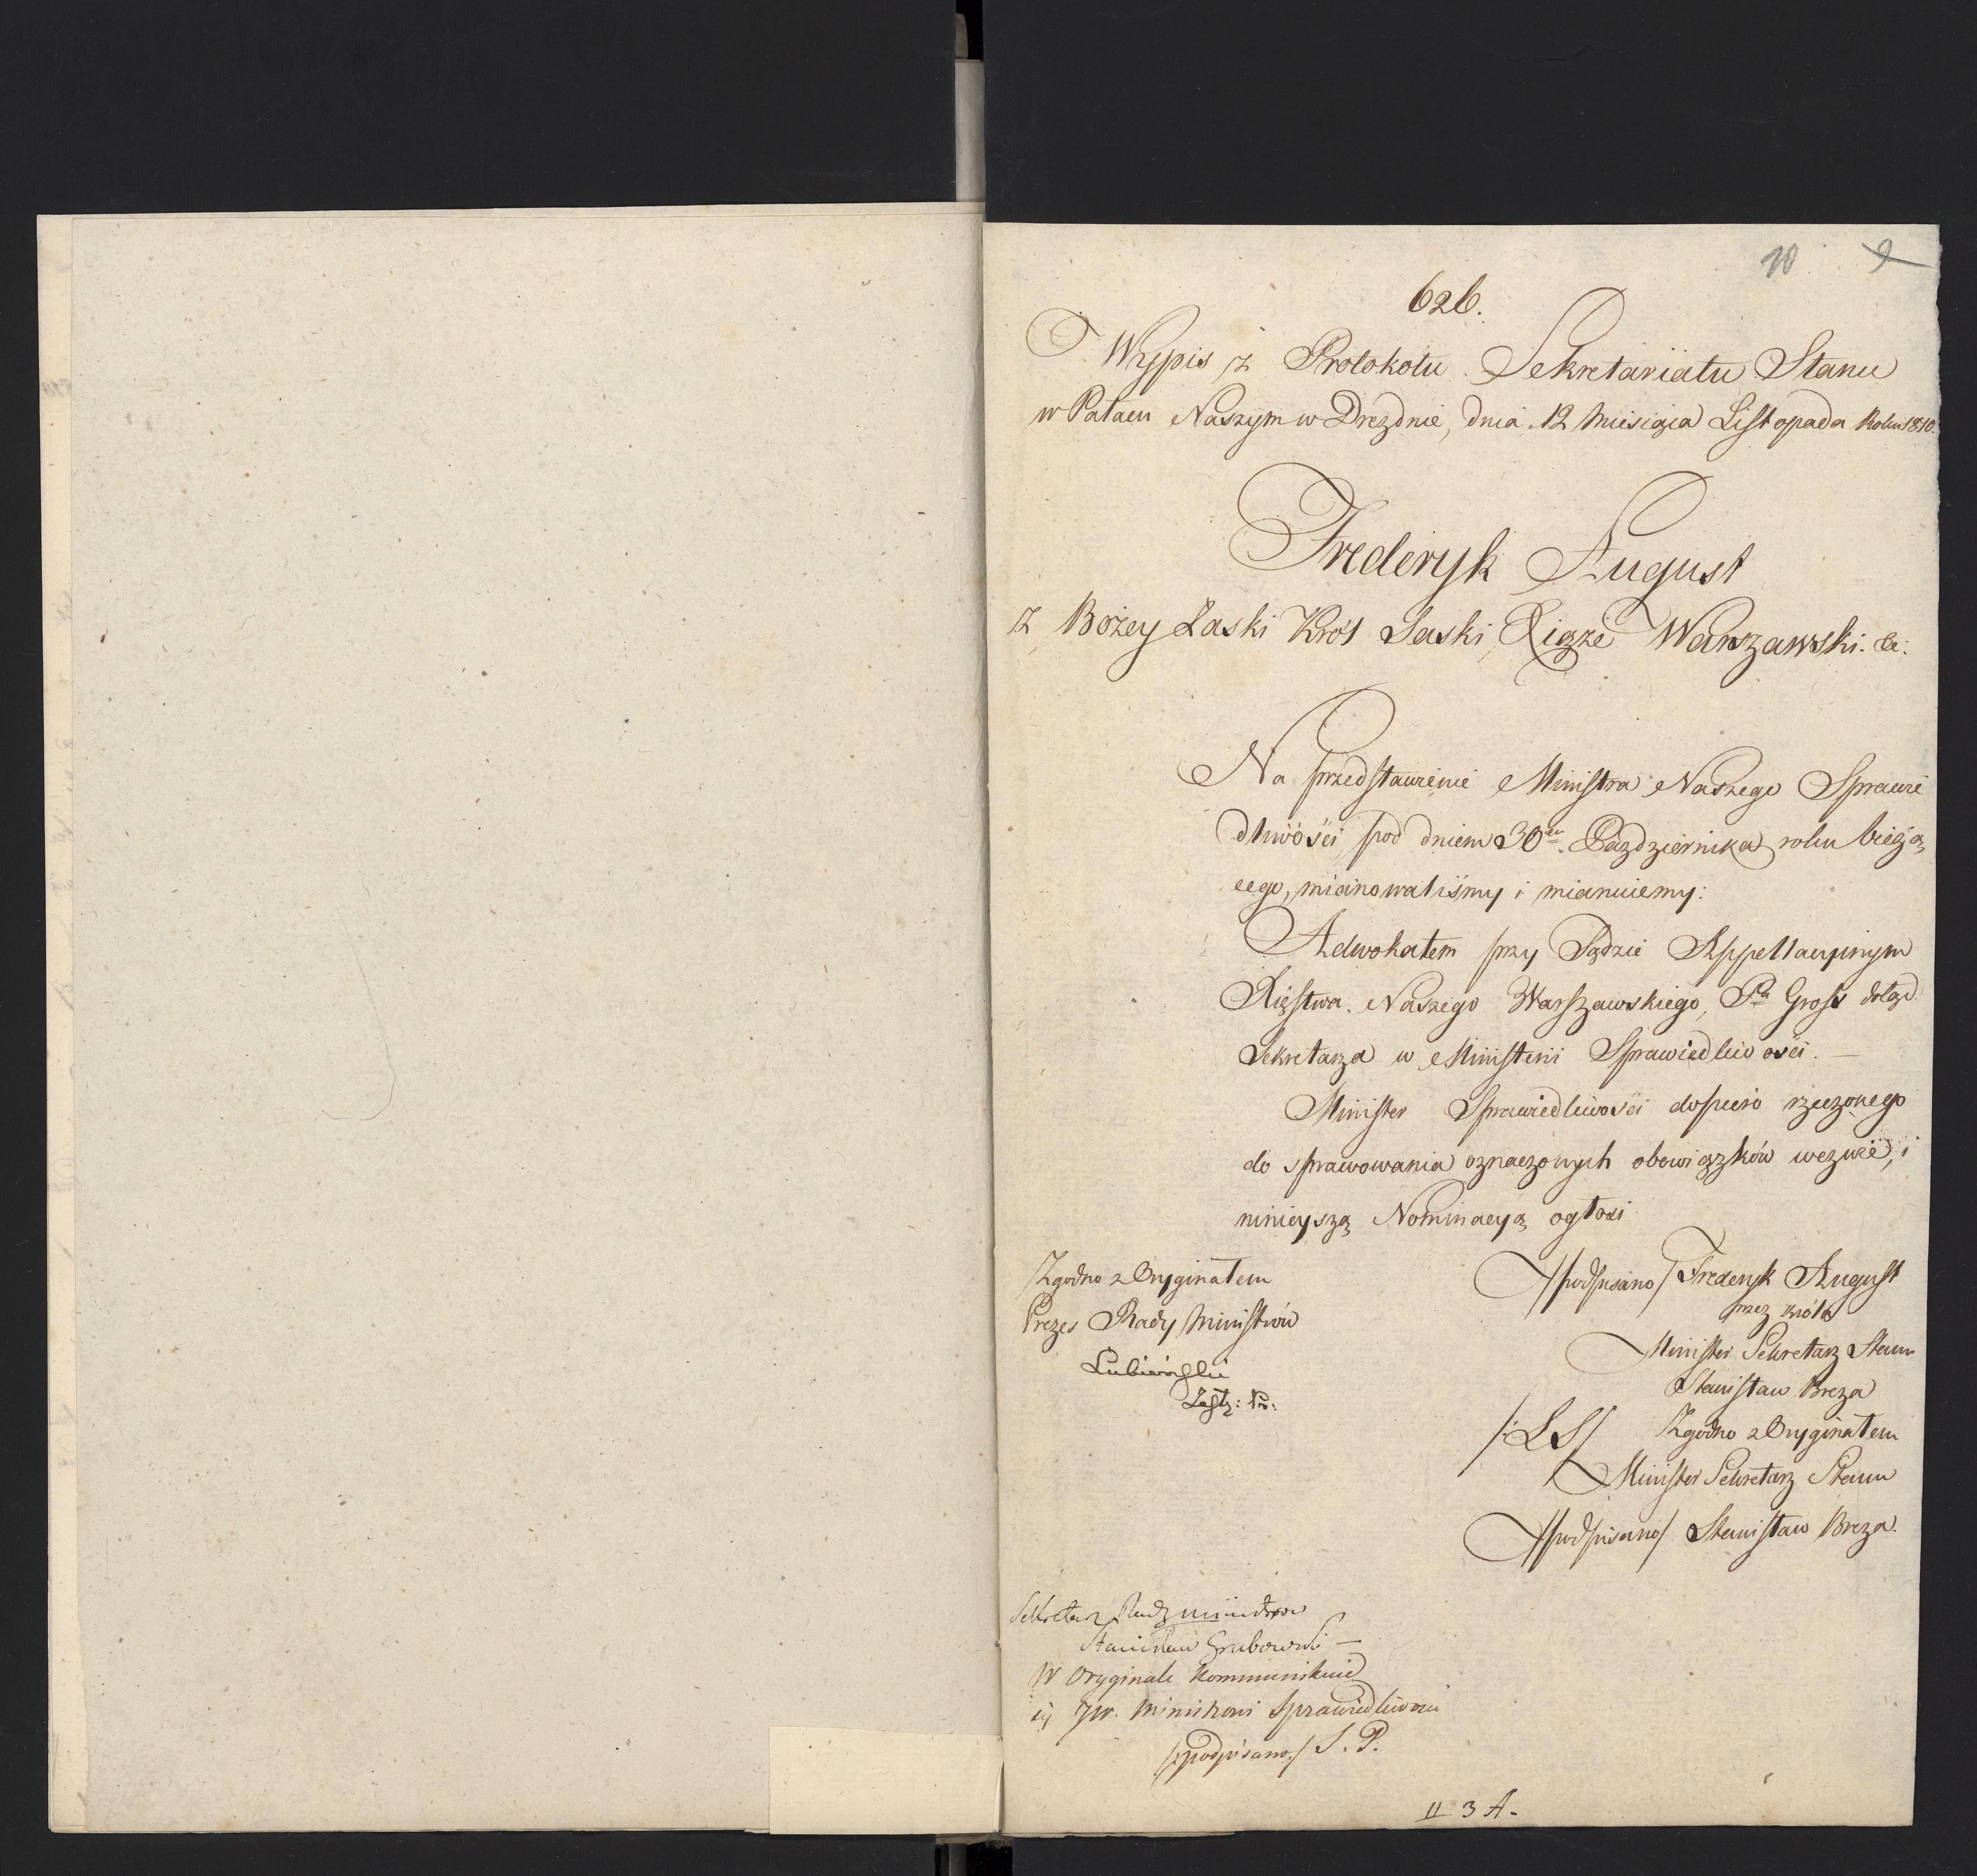 10 9
626.
Wypis z Protokołu Sekretariatu Stanu
w Pałacu Naszym w Dreznie, dnia 12 Miesiąca Listopada Roku 1810.
Frederyk August
z Bożey Łaski Król Saski, Xiąże Warszawski. &c:
Na przedstawienie Ministra Naszego Sprawie
dliwości pod dniem 30en Października roku bieżą
cego, mianowaliśmy i mianuiemy:
Adwokatem przy Sądzie Appellacyinym
Xięstwa Naszego Warszawskiego, Pa Gross dotąd
Sekretarza w Ministerii Sprawiedliwości. —
Minister Sprawiedliwości dopiero rzeczonego
do sprawowania oznaczonych obowiązków wezwie, i
ninieyszą Nominacyą ogłosi
/podpisano/ Frederyk August
przez Króla
Minister Sekretarz Stanu
Stanisław Breza
/:LS/ Zgodno z Oryginałem
Minister Sekretarz Stanu
/podpisano/ Stanisław Breza.
Zgodno z Oryginałem
Prezes Rady Ministrów
Lubieński
Zastz: Pr:
Sekretarz Rady Ministrow
Stanisław Grabowski —
W Oryginale kommunikuie
się JW. Ministrowi Sprawiedliwosci
/:podpisano:/ S. P.
II 3 A.